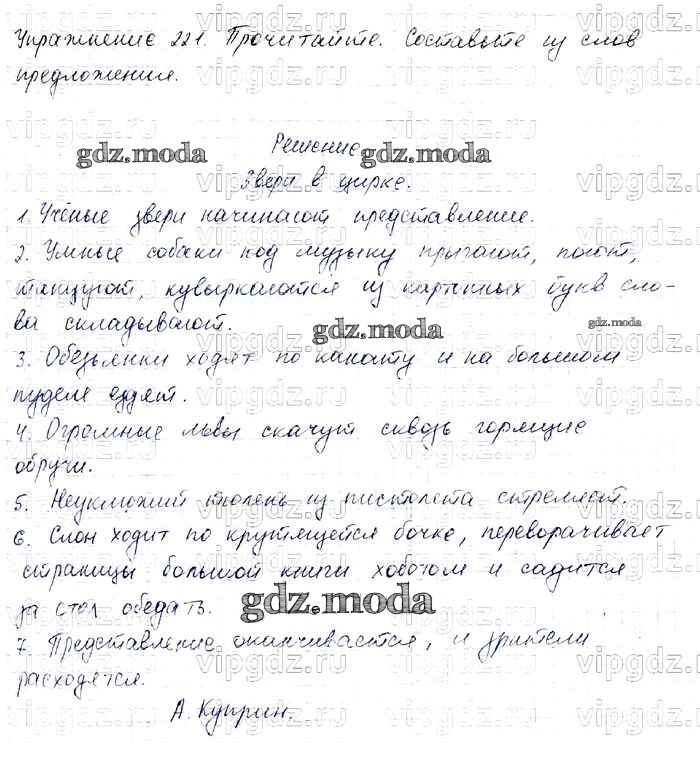 Упражнение 221. Прочитайте. Составьте из слов
предложения.
Решение
gdz.moda
gdz.moda
Звери в цирке.
1. Учёные звери начинают представление.
2. Умные собаки под музыку прыгают, поют,
танцуют, кувыркаются из картонных букв сло-
ва складывают.
gdz.moda
gdz.moda
3. Обезьянки ходят по канату и на большом
пуделе ездят.
4. Огромные львы скачут сквозь горящие
обручи.
5. Неуклюжий тюлень из пистолета стреляет.
6. Слон ходит по крутящейся бочке, переворачивает
страницы большой книги хоботом и садится
за стол обедать.
gdz.moda
7. Представление оканчивается, и зрители
расходятся.
А. Куприн.
vipgdz.ru